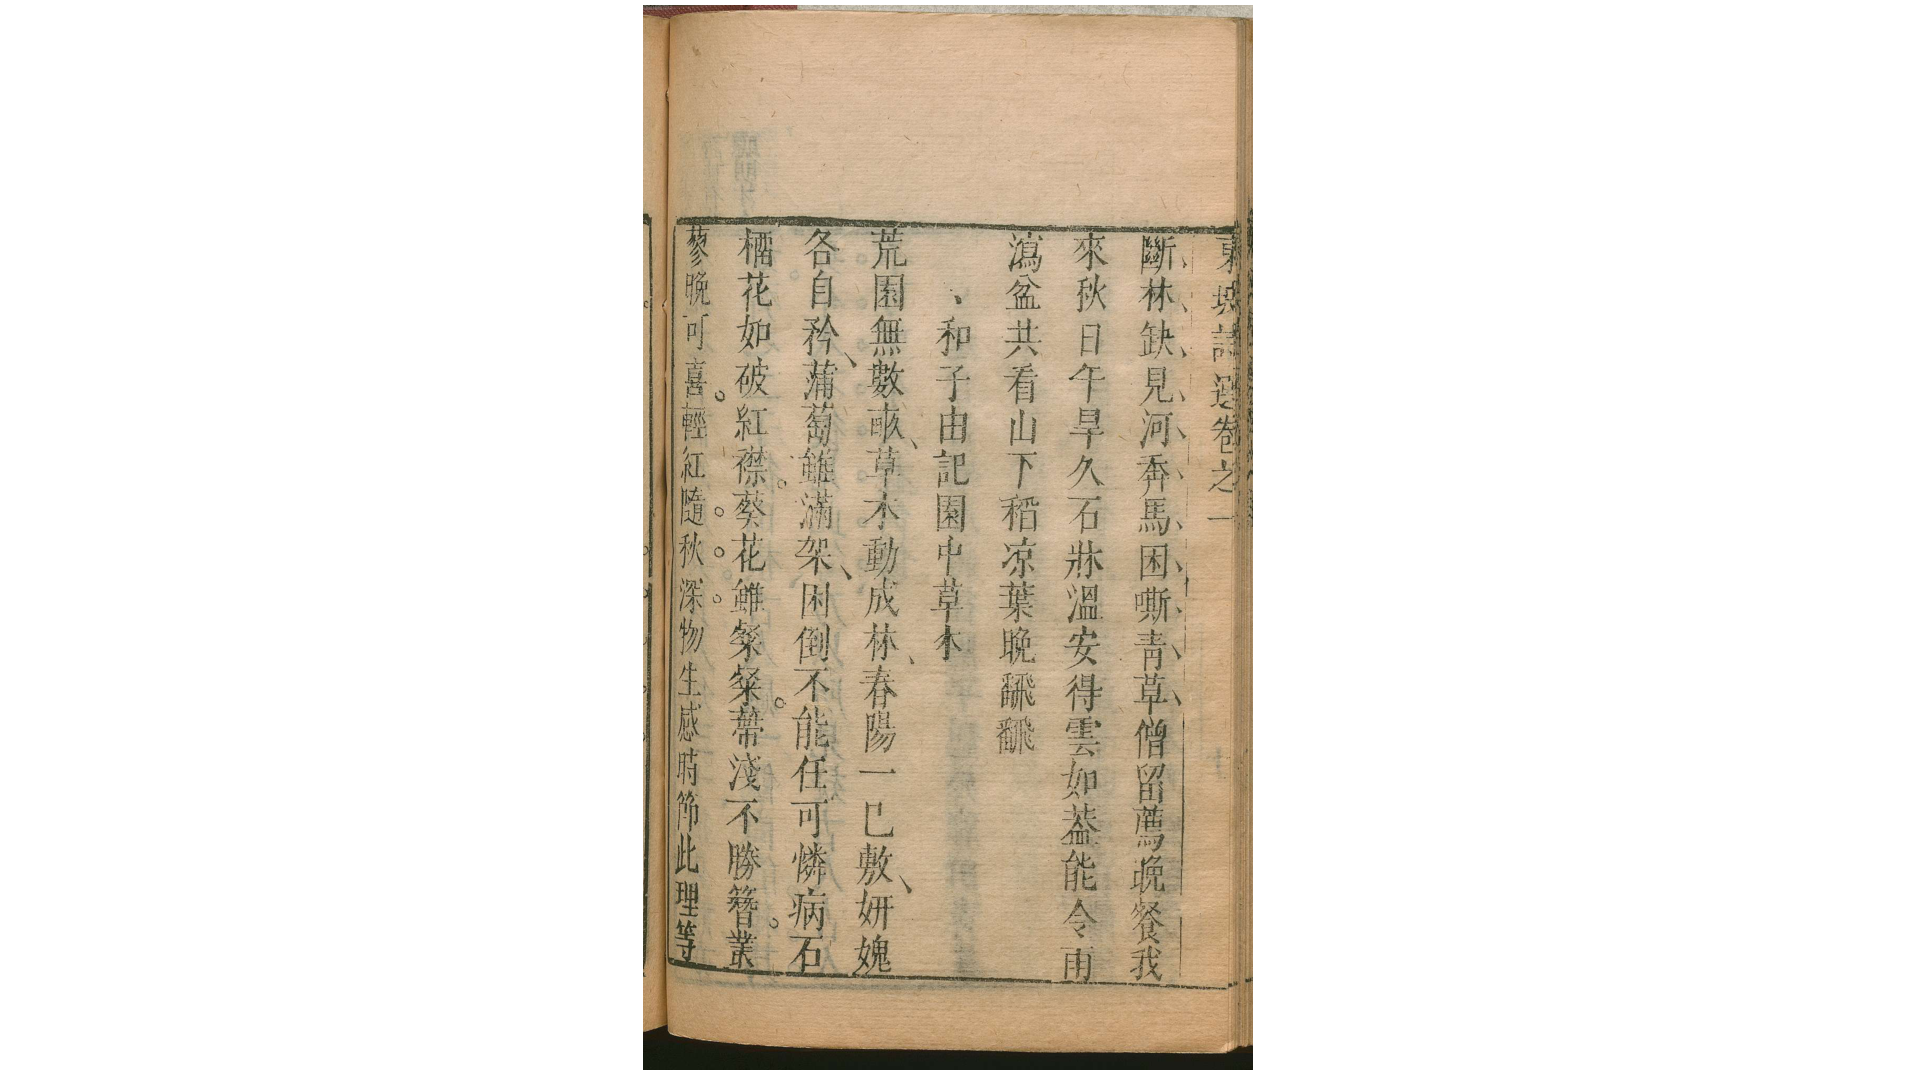 東坡詩選卷之一
斷林缺見河奔馬困嘶青草僧留薦晚餐我
來秋日午旱久石牀溫安得雲如葢能令雨
瀉盆共看山下稻凉葉晚翻翻
和子由記園中草木
荒園無數畝草木動成林春陽一已敷妍媿
各自矜蒲萄雖滿架困倒不能任可憐病石
榴花如破紅襟葵花雖粲粲蔕淺不勝簪叢
蓼晚可喜輕紅隨秋深物生感時節此理等